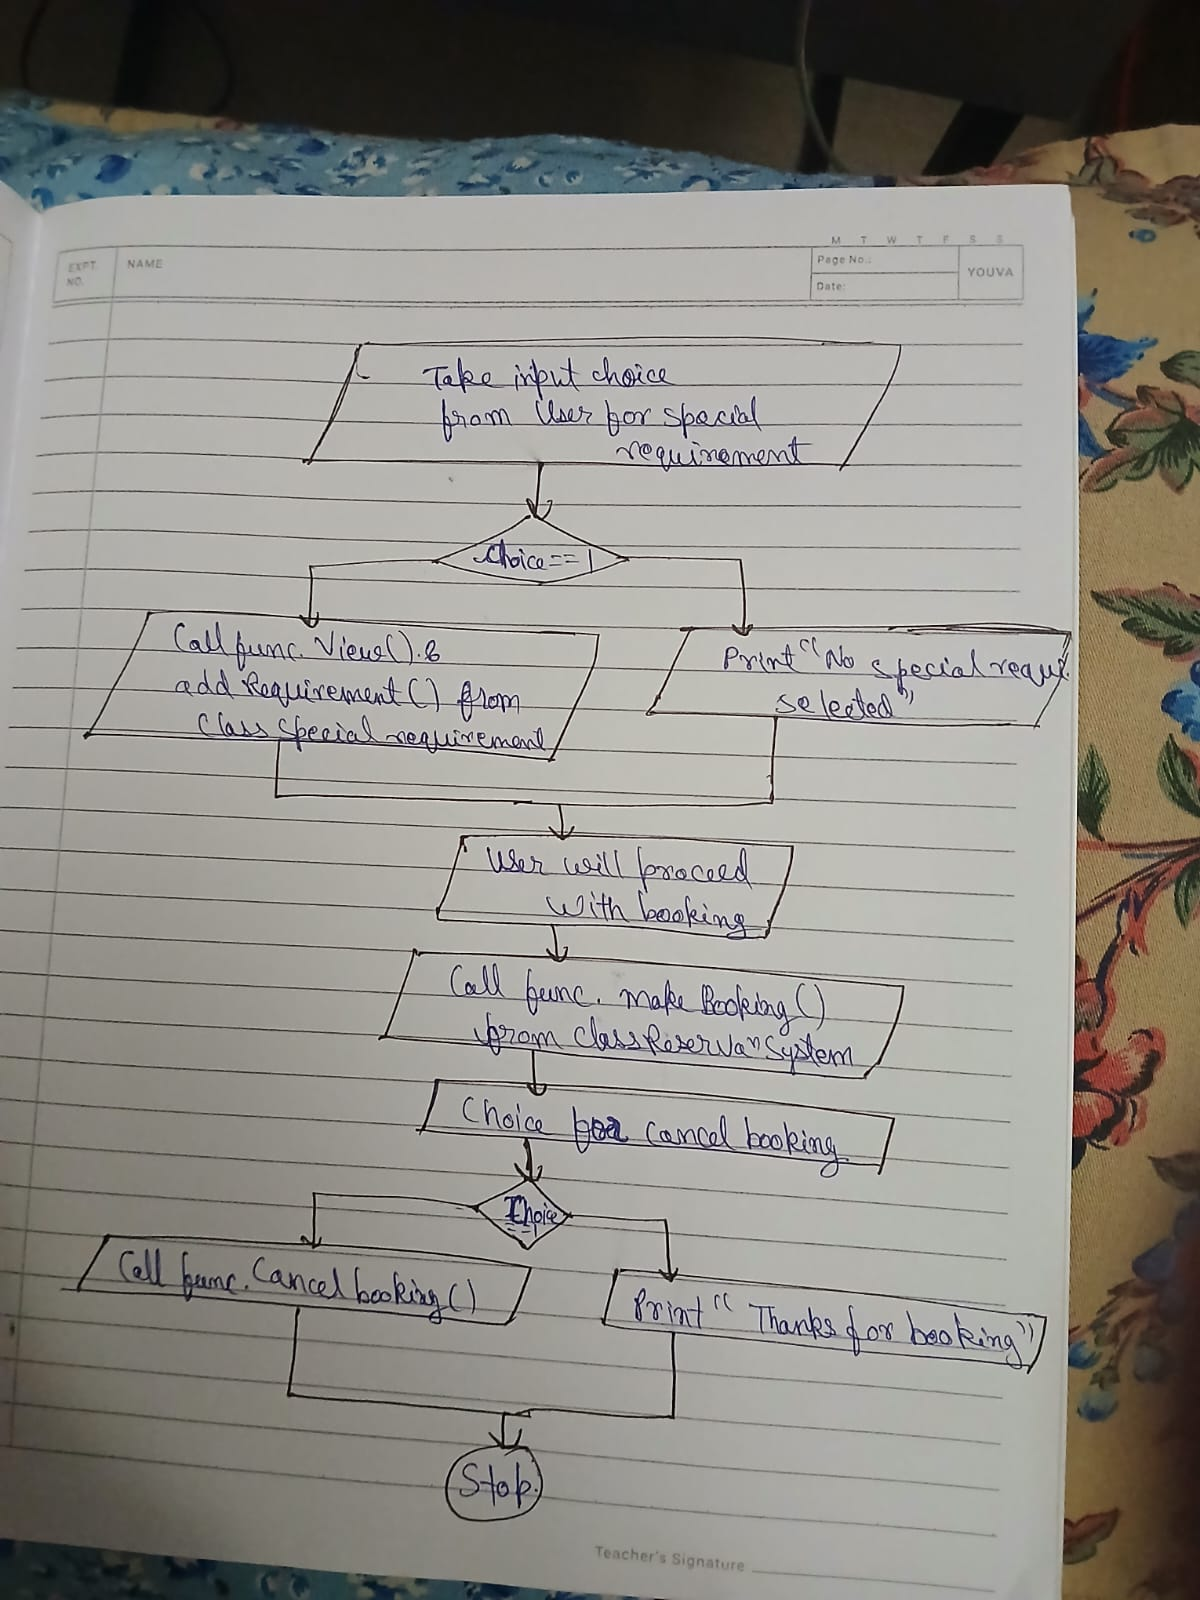 M T W T F S S
EXPT. NO.
NAME
Page No.:
Date:
YOUVA
Take input choice
from User for special
requirement
Choice==1
Call func. View() &
add Requirement() from
Class Special requirement
Print "No special requi
selected"
User will proceed
with booking
Call func. make Booking()
from class Reservaⁿ System
Choice for cancel booking
Choice
==1
Call func. Cancel booking()
Print "Thanks for booking"
Stop.
Teacher's Signature